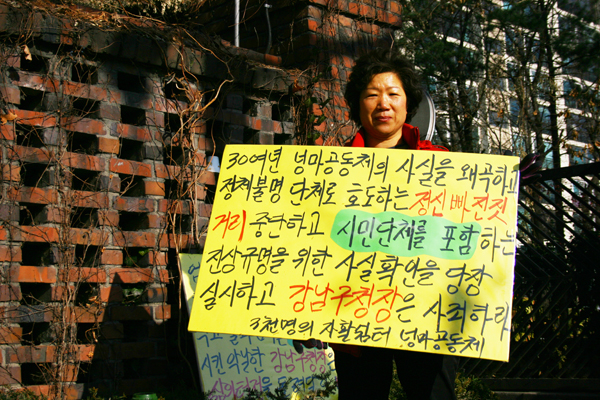 30여년 넝마공동체의 사실을 왜곡하고
정체불명 단체로 호도하는 정신 빠진짓
거리 중단하고 시민단체를 포함하는
진상규명을 위한 사실확인을 당장
실시하고 강남구청장은 사죄하라
3천명의 자활쉼터 넝마공동체
시킨 악날한 강남구청장